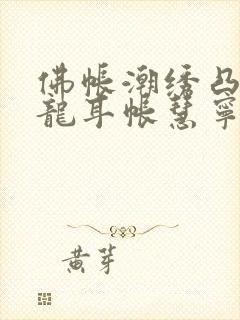 佛帐潮绣凸
龍耳帐慧寧
黄芽